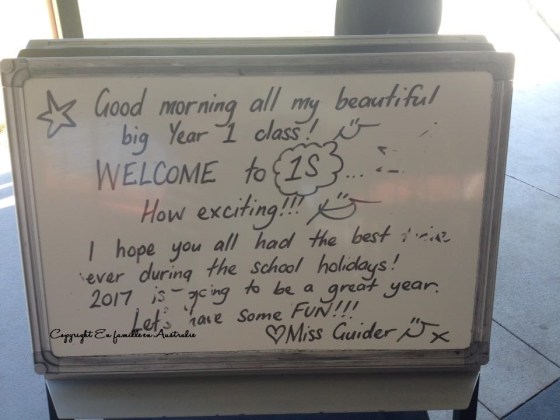 Good morning all my beautiful
big Year 1 class!
WELCOME to 1S ...
How exciting!!!
I hope you all had the best
ever during the school holidays!
2017 is going to be a great year.
Let's have some FUN!!!
♡Miss Guider x
Copyright En famille en Australie